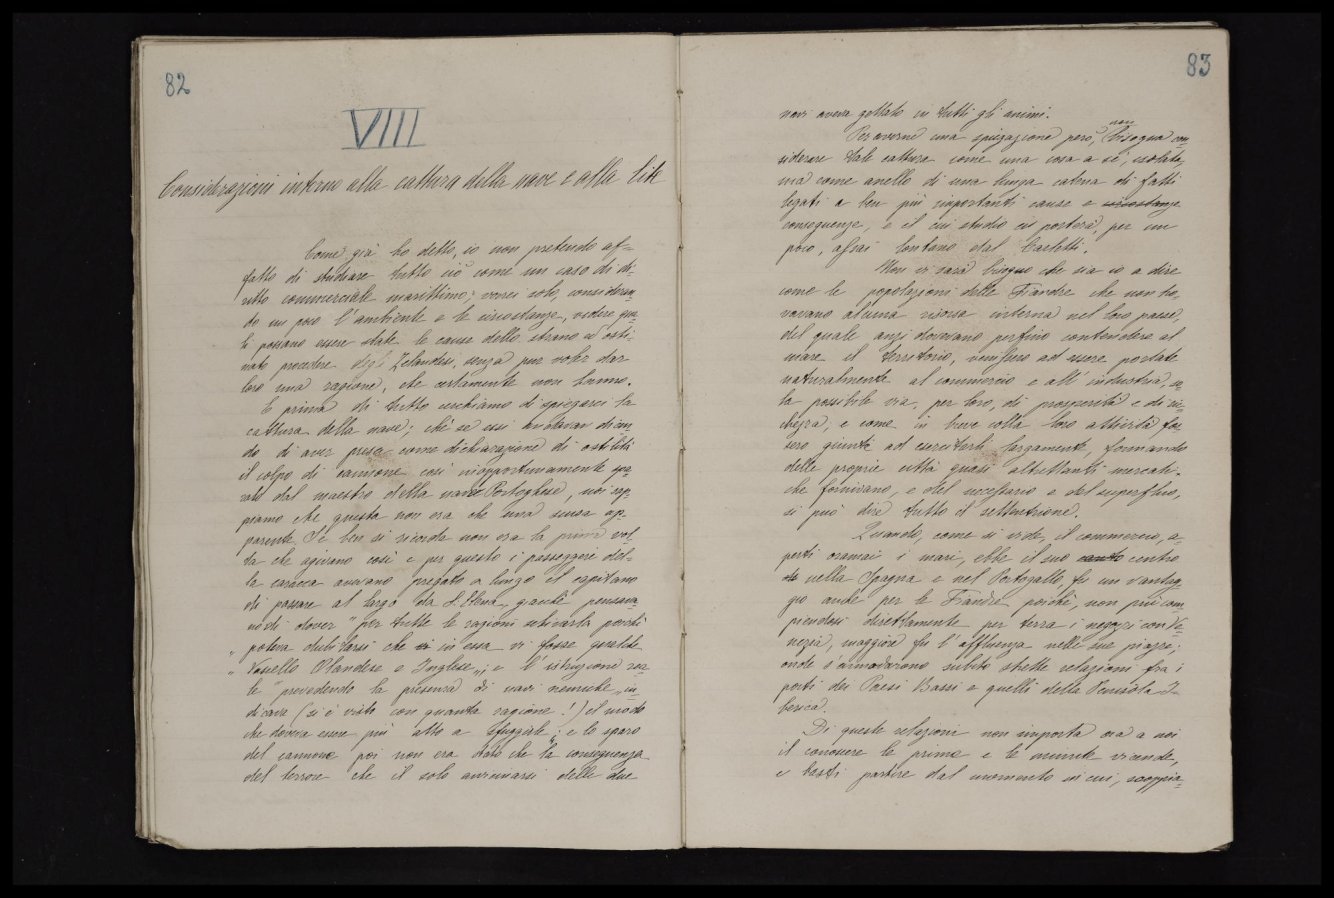 82
VIII
Considerazioni intorno alla cattura della nave e alla lite
Come già ho detto, io non pretendo af-
fatto di studiare tutto ciò come un caso di di-
ritto commerciale marittimo; vorrei solo, consideran-
do un poco l'ambiente e le circostanze, vedere qua-
li possano essere state le cause dello strano ed osti-
nato procedere degli Zelandesi, senza pur voler dar
loro una ragione, che certamente non hanno.
E prima di tutto cerchiamo di spiegarci la
cattura della nave; chè se essi andavan dicen-
do di aver presa come dichiarazione di ostilità
il colpo di cannone così inopportunamente spa-
rato dal maestro della nave Portoghese, noi sap-
piamo che questa non era che una scusa ap-
parente. Se ben si ricorda non era la prima vol-
ta che agivano così e per questo i passeggeri del-
la caracca avevano pregato a lungo il capitano
di passare al largo da S. Elena, giacchè pensava-
no di dover "per tutte le ragioni schivarla poichè
" poteva dubitarsi che in essa vi fosse qualche
" Vassello Olandese o Inglese „; e l'istruzione rea-
le "prevedendo la presenza di navi nemiche „ in-
dicava (si è visto con quanta ragione!) el modo
che doveva essere più atto a sfuggirle; e lo sparo
del cannone poi non era stato che la conseguenza
del terrore che il solo avvicinarsi delle due
83
navi aveva gettato in tutti gli animi.
Per averne una spiegazione però, non bisogna con-
siderare tale cattura come una cosa a sè, isolata,
ma come anello di una lunga catena di fatti
legati a ben più importanti cause e circostanze
conseguenze, e il cui studio ci porterà, per un
poco, assai lontano dal Carletti.
Non ci sarà bisogno che sia io a dire
come le popolazioni delle Fiandre che non tro-
vavano alcuna risorsa interna nel loro paese,
del quale anzi dovevano perfino contendere al
mare il territorio, venissero ad essere portate
naturalmente al commercio e all'industria, so-
la possibile via, per loro, di prosperità e di ric-
chezza, e come in breve colla loro attività fos-
sero giunte ad esercitarli largamente, formando
delle proprie città quasi altrettanti mercati,
che fornivano, e del necessario e del superfluo,
si può dire tutto il settentrione.
Quando, come si vede, il commercio, a-
perti oramai i mari, ebbe il suo centro
nella Spagna e nel Portogallo, fu un vantag-
gio anche per le Fiandre poichè, non più com-
piendosi direttamente per terra i negozi con Ve-
nezia, maggiore fu l'affluenza nelle sue piazze;
onde s'annodarono subito strette relazioni fra i
porti dei Paesi Bassi e quelli della Penisola I-
berica.
Di queste relazioni non importa ora a noi
il conoscere le prime e le minute vicende,
e basti partire dal momento in cui, scoppia-